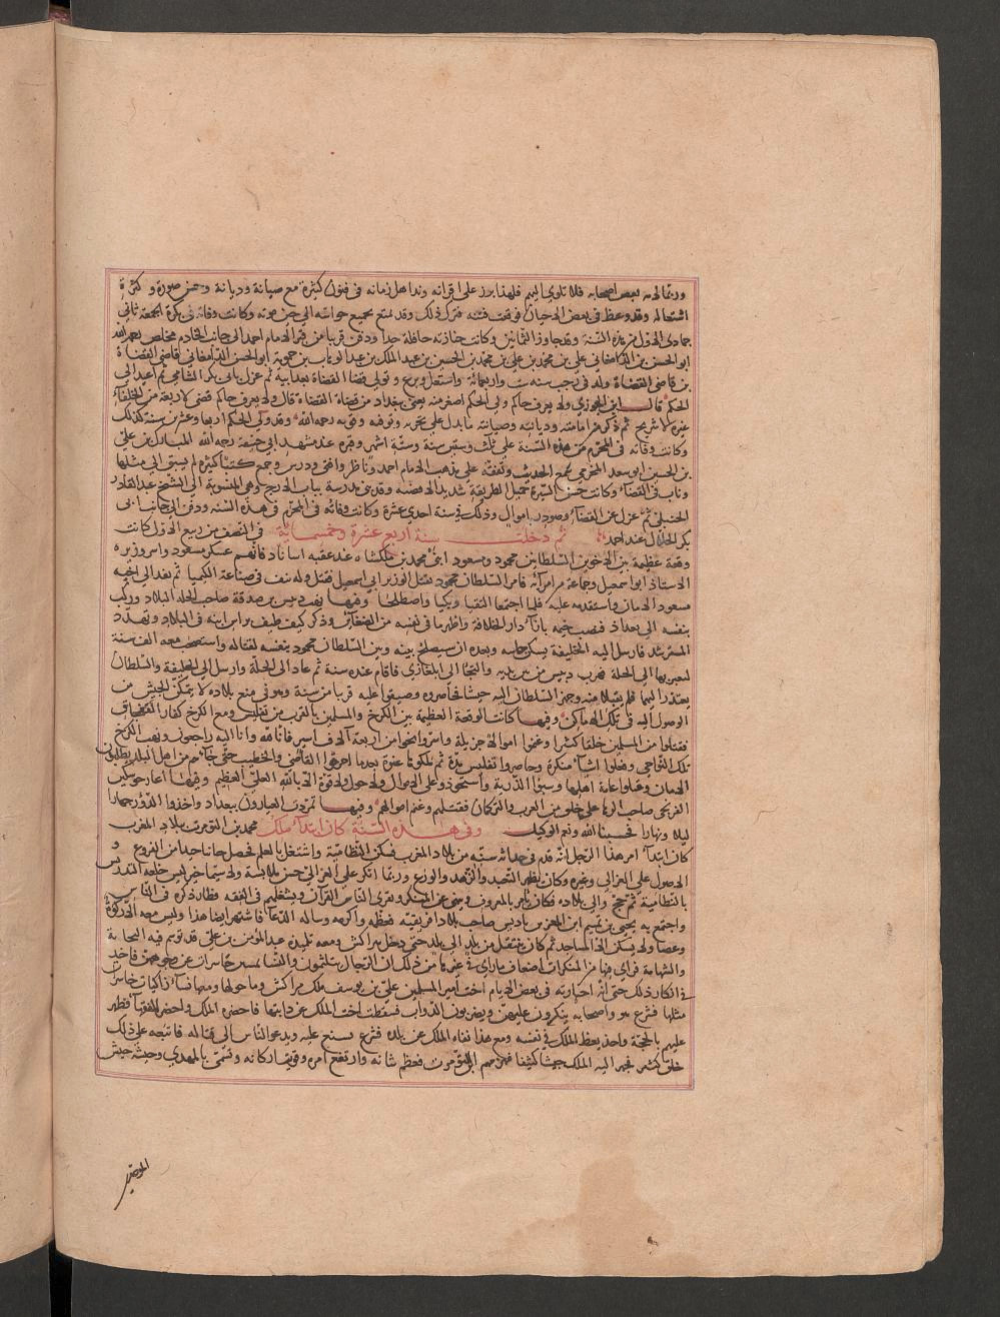 وربما لامه بعض اصحابه فلا تلوي اليهم فلهذا برز على اقرانه وبذ اهل زمانه في فنون كثيرة مع صيانة وديانة وحسن صورة وكثرة
اشتغال وقد وعظ في بعض الاحيان فوقعت فتنة فترك ذلك وقد متع بجميع حواسه الى حين موته وكانت وفاته في بكرة الجمعة ثاني
جمادى الاولى من هذه السنة وقد جاوز الثمانين وكانت جنازته حافلة جدا ودفن قريبا من قبر الامام احمد الى جانب الخادم مخلص رحمه الله
ابو الحسن بن الدامغاني علي بن محمد بن علي بن محمد بن الحسن بن عبد الملك بن عبد الوهاب بن حموية ابو الحسن الدامغاني قاضي القضاة
بن قاضي القضاة ولد في رجب سنة ست واربعمائة واستقل وبرع وتولى قضا القضاة بعد ابيه ثم عزل بابي بكر الشامي ثم اعيد الى
الحكم قال ابن الجوزي ولا يعرف حاكم ولي الحكم اصغر منه يعني ببغداد من قضاة القضاة قال ولا يعرف حاكم قضى لاربعة من الخلفاء
غيره الا شريح ثم ذكر من امامته وديانته وصيانته ما يدل على تحريه وتوقيه وقوته رحمه الله وقد ولي الحكم اربعا وعشرين سنة كذلك
وكانت وفاته في المحرم من هذه السنة على ثلث وستين سنة وستة اشهر وقبره عند مشهد ابي حنيفة رحمه الله المبارك بن علي
بن الحسين ابو سعد المخرمي سمع الحديث وتفقه على مذهب الامام احمد وناظر وافتى ودرس وجمع كتبا كثيرة لم يسبق الى مثلها
وناب في القضاء وكانت حسن السيرة جميل الطريقة شديد الاقضية وقد بنى مدرسة بباب الازج وهي المنسوبة الى الشيخ عبد القادر
الحنبلي ثم عزل عن القضاء وصودر باموال وذلك في سنة احدى عشرة وكانت وفاته في المحرم في هذه السنة ودفن الى جانب ابي
بكر الخلال عند احمد ثم دخلت سنة اربع عشرة وخمسمائة في النصف من ربيع الاول كانت
وقعة عظيمة بين الاخوين السلطانين محمود ومسعود ابني محمد بن ملكشاه عند عقبة اساناد فانهزم عسكر مسعود واسر وزيره
الاستاذ ابو اسمعيل وجماعة من امرائه فامر السلطان محمود بقتل الوزير ابي اسمعيل فقتل وله تصنيف في صناعة الكيميا ثم بعد الى اخيه
مسعود الامان واستقدمه عليه فلما اجتمعا التقيا وبكيا واصطلحا وفيها نهب دبيس بن صدقة صاحب الحلة البلاد وركب
بنفسه الى بغداد فنصب خيمة بازاء دار الخلافة واظهر ما في نفسه من الضغائن وذكر كيف طيف براس ابيه في البلاد وتهدد
المسترشد فارسل اليه الخليفة يسكن جاشه ووعده ان سيصلح بينه وبين السلطان محمود بنفسه لقتاله واستصحب معه الف سنة
ليعبر بها الى الحلة فهرب دبيس من بين يديه والتجا الى ايلغازي فاقام عنده سنة ثم عاد الى الحلة وارسل الى الخليفة والسلطان
يعتذر اليهما فلم يقبلا منه وجهز السلطان اليه جيشا فحاصروه وضيقوا عليه قريبا من سنة وهو في منع بلاده لا يتمكن الجيش من
الوصول اليه في تلك الاماكن وفيها كانت الوقعة العظيمة بين الكرج والمسلمين بالقرب من تفليس ومع الكرج كفار القفجاق
فقتلوا من المسلمين خلقا كثيرا وغنموا اموالا جزيلة واسروا نحوا من اربعة الاف اسير فانا لله وانا اليه راجعون ونهب الكرج
تلك النواحي وفعلوا اشياء منكرة وحاصروا تفليس مدة ثم ملكوها عنوة بعدما احرقوا القاضي والخطيب حين جاءهم من اهل البلد يطلبون
الامان وقتلوا عامة اهلها وسبوا الذرية واستحوذوا على الاموال ولا حول ولا قوة الا بالله العلي العظيم وفيها اغار جوسلين
الفرنجي صاحب الرها على خلق من العرب والتركمان فقتلهم وغنم اموالهم وفيها تمردت العيارون ببغداد واخذوا الدور جهارا
ليلا ونهارا فحسبنا الله ونعم الوكيل وفي هذه السنة كان ابتداء ملك محمد بن التومرت ببلاد المغرب
كان ابتداء امر هذا الرجل انه قدم في حداثة سنه من بلاد المغرب فسكن النظامية واشتغل بالعلم فحصل جانبا جيدا من الفروع و
الاصول على الغزالي وغيره وكان يظهر التعبد والزهد والورع وربما انكر على الغزالي حسن ملابسه ولا سيما حين لبس خلعة التدريس
بالنظامية ثم حج وعاد الى بلاده فكان يامر بالمعروف وينهى عن المنكر ويقري الناس القرآن ويشغلهم في الفقه فطار ذكره في الناس
واجتمع به يحيى بن تميم ابن المعز بن باديس صاحب بلاد افريقية فعظمه واكرمه وساله الدعا فاشتهر ايضا هذا وليس معه الا ركوة
وعصا ولا يسكن الا المساجد ثم كان ينتقل من بلد الى بلد حتى دخل مراكش ومعه تلميذه عبد المؤمن بن علي قد توسم فيه النجابة
والشهامة فراى فيها من المنكرات اضعاف ما راى في غيرها من ذلك ان الرجال يتلثمون والنسا يمشين حاسرات عن وجوههن فاخذ
في انكار ذلك حتى انه اجتازت به في بعض الايام اخت امير المسلمين علي بن يوسف ملك مراكش وما حولها ومعها نساء راكبات حاسرات
مثلها فشرع هو واصحابه ينكرون عليهن ويضربون الدواب فسقطت اخت الملك عن دابتها فاحضره الملك واحضر الفقها فظهر
عليهم بالحجة واخذ يعظ الملك في نفسه ومع هذا نفاه الملك عن بلده فشرع يشنع عليه ويدعو الناس الى قتاله فاتبعه على ذلك
خلق كثير فجهز اليه الملك جيشا كثيفا فهزمهم ابن التومرت فعظم شانه وارتفع امره وقويت اركانه وتسمى بالمهدي وجيشه جيش
الموحدين